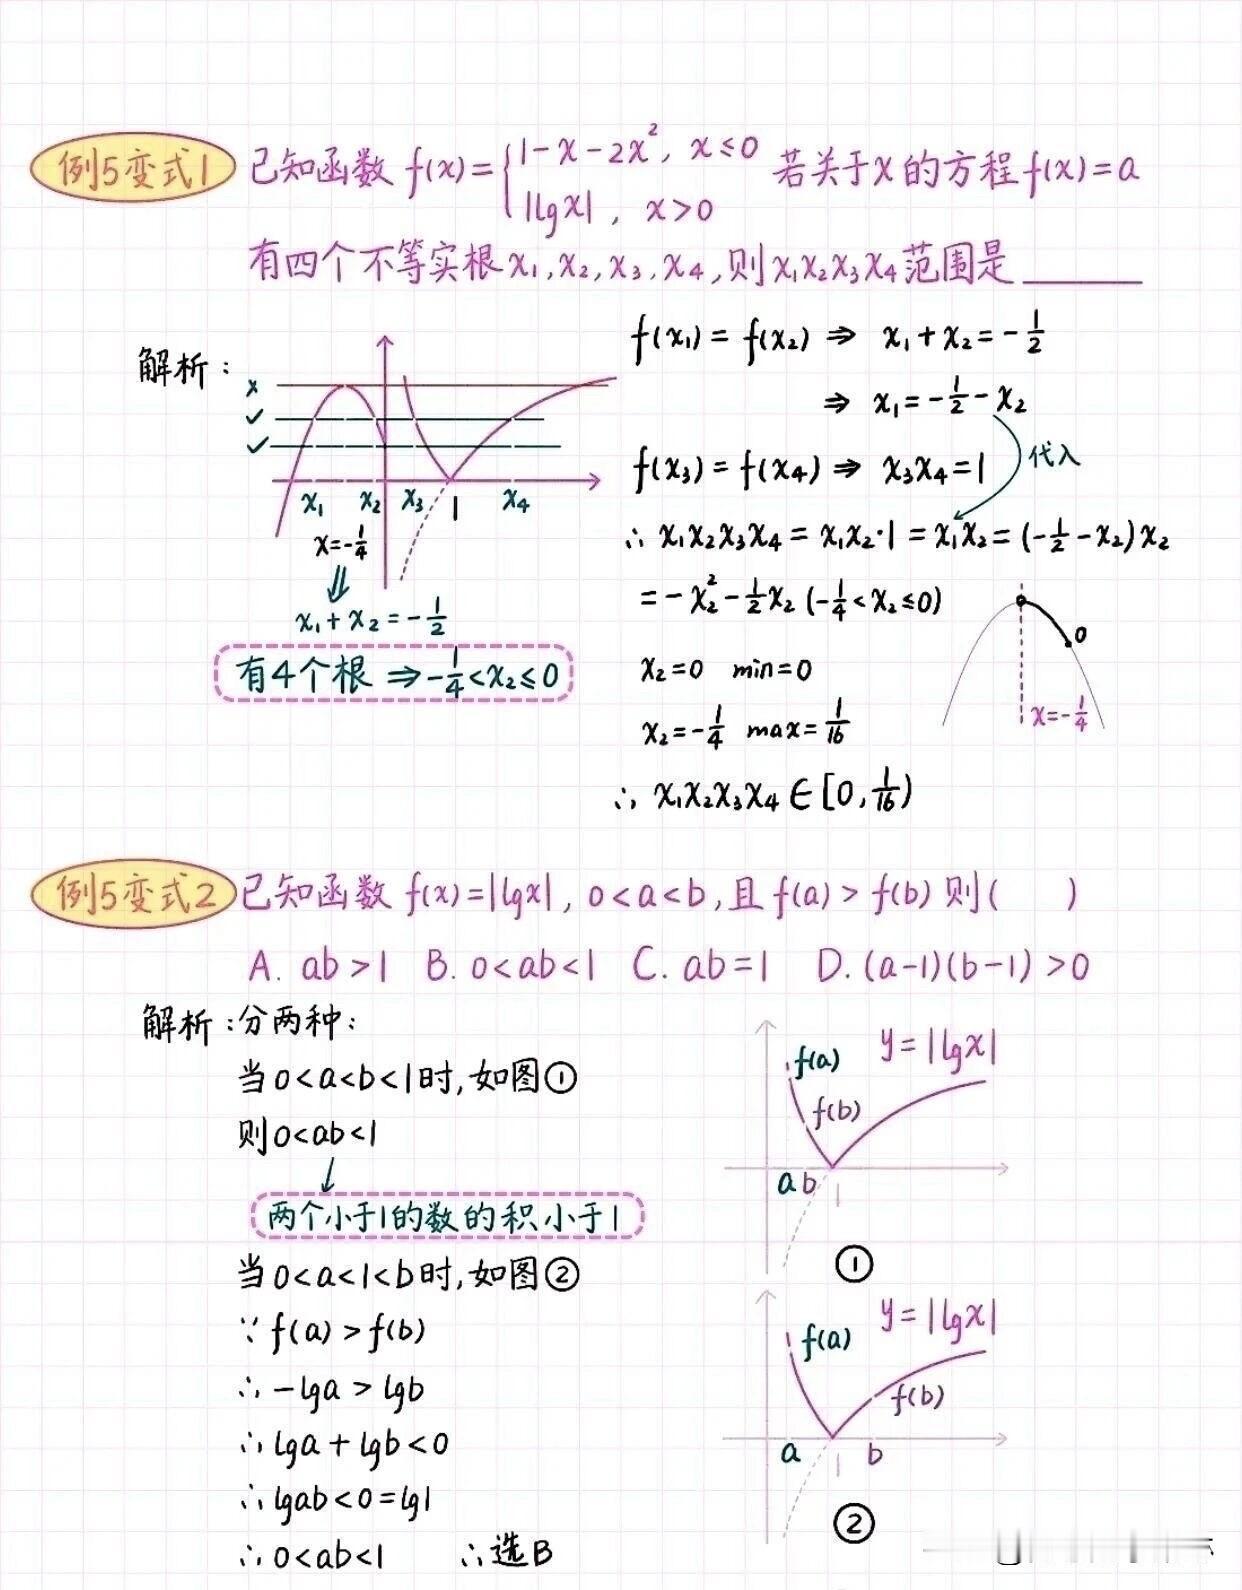 例5变式1 已知函数 f(x)={1-x-2x², x≤0 若关于x的方程f(x)=a
|lgx|, x>0
有四个不等实根x₁,x₂,x₃,x₄,则x₁x₂x₃x₄范围是______
解析:
x
✓
✓
x₁ x₂ x₃ 1 x₄
x=-1/4
⇓
x₁+x₂=-1/2
有4个根⇒-1/4<x₂≤0
f(x₁)=f(x₂)⇒ x₁+x₂=-1/2
⇒ x₁=-1/2-x₂
代入
f(x₃)=f(x₄)⇒ x₃x₄=1
∴ x₁x₂x₃x₄=x₁x₂·1=x₁x₂=(-1/2-x₂)x₂
=-x₂²-1/2x₂(-1/4<x₂≤0)
x₂=0 min=0
x₂=-1/4 max=1/16
∴ x₁x₂x₃x₄∈[0,1/16)
0
x=-1/4
例5变式2 已知函数 f(x)=|lgx|, 0<a<b,且f(a)>f(b)则( )
A. ab>1 B. 0<ab<1 C. ab=1 D. (a-1)(b-1)>0
解析:分两种:
当0<a<b<1时,如图①
则0<ab<1
↓
两个小于1的数的积小于1
当0<a<1<b时,如图②
∵f(a)>f(b)
∴-lga>lgb
∴lga+lgb<0
∴lgab<0=lg1
∴0<ab<1 ∴选B
y=|lgx|
f(a)
f(b)
a b 1
①
y=|lgx|
f(a)
f(b)
a 1 b
②